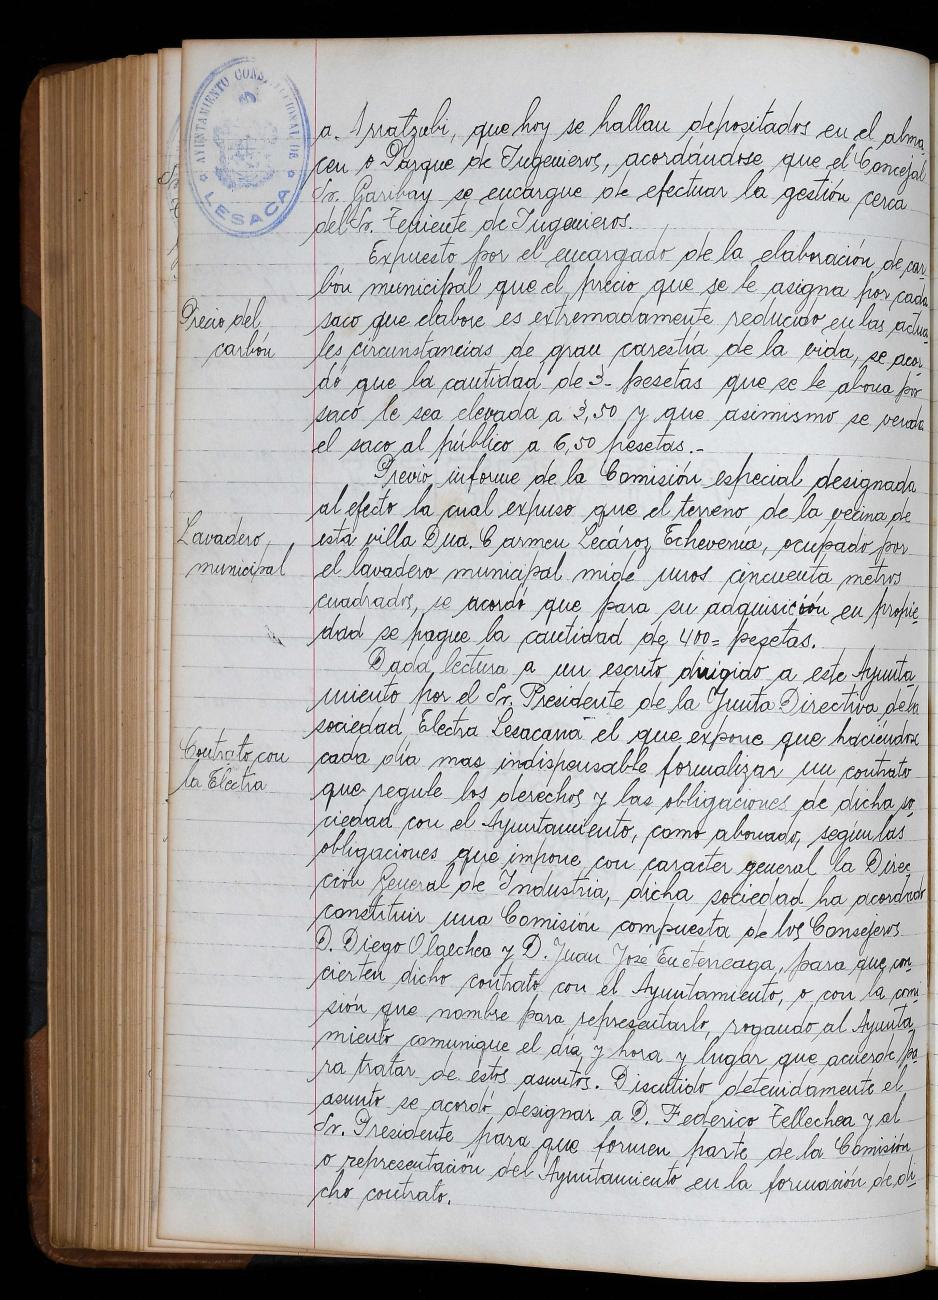 AYUNTAMIENTO CONSTITUCIONAL DE
LESACA
a Arratzubi, que hoy se hallan depositados en el alma-
cen o Parque de Ingenieros, acordándose que el Concejal
Sr. Garibay se encargue de efectuar la gestión cerca
del Sr. Teniente de Ingenieros.
Expuesto por el encargado de la elaboración de car-
bón municipal que el precio que se le asigna por cada
Precio del
carbón
saco que elabore es extremadamente reducido en las actua-
les circunstancias de gran carestía de la vida, se acor-
dó que la cantidad de 3- pesetas que se le abona por
saco le sea elevada a 3,50 y que asimismo se venda
el saco al público a 6,50 pesetas.-
Previo informe de la Comisión especial designada
al efecto la cual expuso que el terreno de la vecina de
Lavadero
municipal
esta villa Dña. Carmen Lecároz Echevenia, ocupado por
el lavadero municipal mide unos cincuenta metros
cuadrados, se acordó que para su adquisición en propie-
dad se pague la cantidad de 400= pesetas.
Dada lectura a un escrito dirigido a este Ayunta-
miento por el Sr. Presidente de la Junta Directiva de la
sociedad Electra Lesacana el que expone que haciéndose
Contrato con
la Electra
cada día mas indispensable formalizar un contrato
que regule los derechos y las obligaciones de dicha so-
ciedad con el Ayuntamiento, como abonado, según las
obligaciones que impone con caracter general la Direc-
ción General de Industria, dicha sociedad ha acordado
constituir una Comisión compuesta de los Consejeros
D. Diego Olaechea y D. Juan Jose para que con-
cierten dicho contrato con el Ayuntamiento, o con la comi-
sión que nombre para representarlo, rogando al Ayunta-
miento comunique el día y hora y lugar que acuerde pa-
ra tratar de estos asuntos. Discutido detenidamente el
asunto se acordó designar a D. Federico Tellechea y al
Sr. Presidente para que formen parte de la Comisión
o representación del Ayuntamiento en la formación de di-
cho contrato.